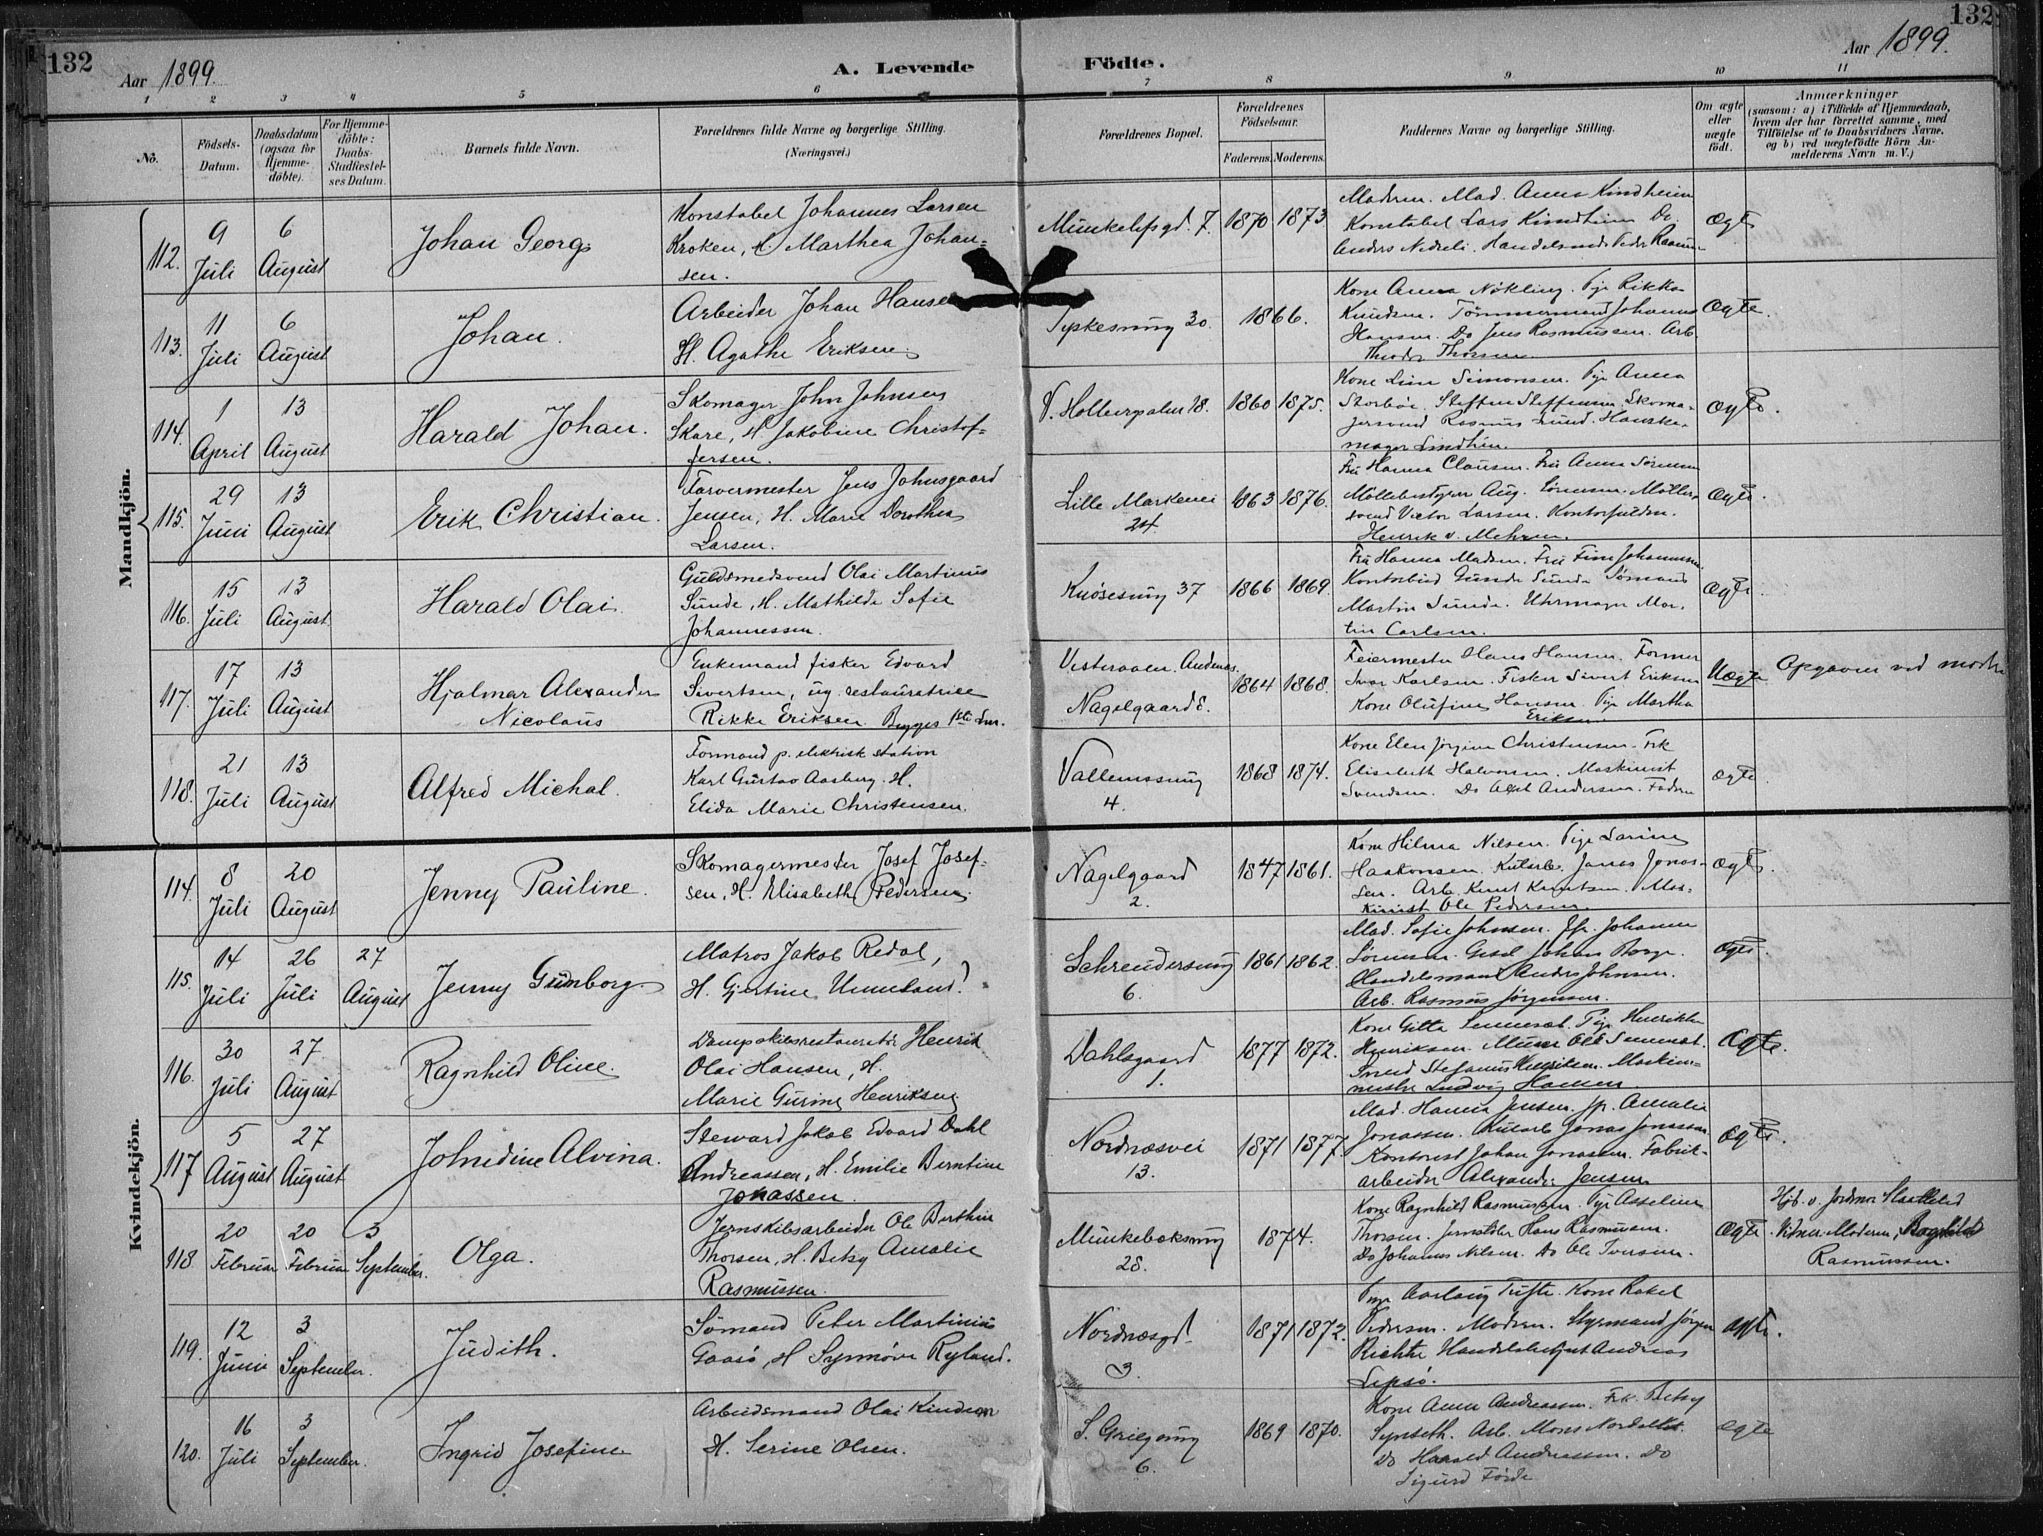 132
Aar 1899.
A. Levende
Födte.
Aar 1899.
132
1 2 3 4 5 6 7 8 9 10 11
No.
Födsels-
Datum.
Daabsdatum
(ogsaa for
Hjemme-
döbte).
For Hjemme-
döbte:
Daabs-
Stadfæstel-
ses Datum.
Barnets fulde Navn.
Forældrenes fulde Navne og borgerlige Stilling.
(Næringsvei.)
Forældrenes Bopæl.
Forældrenes
Födselsaar.
Faderens. Moderens.
Faddernes Navne og borgerlige Stilling.
Om ægte
eller
uægte
födt.
Anmærkninger
(saasom: a) i Tilfælde af Hjemmedaab,
hvem der har forrettet samme, med
Tilföielse af to Daabsvidners Navne,
og b) ved uægtefödte Börn An-
melderens Navn m. V.)
Mandkjön.
112.
9
Juli
6
August
Johan Georg
Konstabel Johannes Larsen
Kroken, H. Marthea Johan=
sen.
Munkelifsgd. 7.
1870 1873.
Moderen. Mad. Anna Kindheim
Konstabel Lars Kindheim Do.
Anders Nedreli. Handelsmd Peder
Ægte
113.
11
Juli
6
August
Johan.
Arbeider Johan Hansen
H. Agathe Eriksen.
Sypkesmug 30.
1866.
Kone Anna Nökling. Pige Rikka
Knudsen. Tömmermand Johannes
Hansen. Do Jens Rasmussen. Arb.
Theodor Thorsen
Ægte.
114.
1
April
13
August
Harald Johan.
Skomager John Johnsen
Skare, H. Jakobine Christof=
fersen.
V. Holbergsalm. 18.
1860 1875.
Kone Lina Simonsen. Pige Anna
Storböe. Steffen Steffensen. Skoma-
gersvend Rasmus Lund. Handske-
mager
Ægte.
115.
29
Juni
13
August
Erik Christian.
Farvermester Jens Johnsgaard
Jensen, H. Marie Dorothea
Larsen.
Lille Markevei
24.
1863 1876.
Fru Hanna Clausen. Fru Anna Sörensen
Möllebestyrer Aug. Sörensen. Möller-
svend Victor Larsen. Kontorfuldm.
Henrik v. Mehren.
Ægte.
116.
15
Juli
13
August
Harald Olai.
Guldsmedsvend Olai Martinus
Sunde, H. Mathilde Sofie
Johannessen.
Knösesmug 37
1866 1869.
Fru Hanna Madsen. Fru Fina Johannesen.
Kontorbud Gunde Sunde Sömand
Martin Sunde. Uhrmager Mar-
tin Carlsen.
Ægte.
117.
17
Juli
13
August
Hjalmar Alexander
Nicolaus
Enkemand fisker Edvard
Sivertsen, ug. restauratrice
Rikke Eriksen Begges 1ste
Vesteraalen. Andenæs.
Nagelgaard 8.
1864 1868.
Feiermester Hans Hansen. Former
Ivar Karlsen. Fisker Sivert Eriksen
Kone Olufine Hansen. Pige Martha
Eriksen
Uægte
Opgaven ved
118.
21
Juli
13
August
Alfred Michal.
Formand p. elektrisk station
Karl Gustav Aasberg. H.
Elida Marie Christensen.
Vallemssmug
4.
1868 1874.
Kone Elen Jörgine Christensen. Frk
Elisabeth Halvorsen. Maskinist
Svendsen. Do Axel Andersen. Faderen
ægte.
Kvindekjön.
114.
8
Juli
20
August
Jenny Pauline.
Skomagermester Josef Josef-
sen, H. Elisabeth Pedersen.
Nagelgaard
2.
1847 1861.
Kone Hilma Nilsen. Pige Larine
Haakonsen. Kularb. Janas Jonas-
sen. Arb. Knut Knutsen. Mas-
kinist Ole Pedersen.
Ægte.
115.
14
Juli
26
Juli
27
August
Jenny Gunborg
Matros Jakob Redal,
H. Gjertine Unneland.
Schreudersmug
6.
1861 1862.
Mad. Sofie Johnsen. Jfr. Johanne
Sörensen. Gesel Johan Borge.
Handelsmand Anders Johnsen.
Arb. Rasmus Jörgensen.
Ægte.
116.
30
Juli
27.
August
Ragnhild Oline.
Dampskibsrestauratör Henrik
Olai Hansen, H.
Marie Gurine Henriksen
Dahlsgaard
1.
1877 1872.
Kone Gitta Pige Henrikke
Henriksen. Murer Ole
Svend Stefanus Maskin-
mester Ludvig Hansen.
Ægte.
117
5
August
27
August
Johnedine Alvina.
Steward Jakob Edvard Dahl
Andreassen, H. Emilie Berntine
Jonassen.
Nordnæsvei
13.
1871 1877.
Mad. Hanna Jensen Jfr. Amalie
Jonassen. Kularb Jonas Jonassen
Kontorist Johan Jonassen. Fabrik-
arbeider Alexander Jensen
Ægte.
118.
20
Februar
20
Februar
3
September.
Olga.
Jernskibsarbeider Ole Berthin
Thorsen, H. Betsy Amalie
Rasmussen.
Munkebæksmug
28.
1874.
Kone Ragnhild Rasmussen. Pige Asseline
Thorsen. Hans Rasmussen.
Do Johannes Nilsen. Do Ole Iversen.
Ægte
Hjd. v. Jordmor
Vidner: Moderen, Ragnhild
Rasmussen.
119.
12
Juni
3
September.
Judith.
Sömand Peter Martinius
Gaasö, H. Synnöve Ryland.
Nordnæsgd.
3.
1871 1872.
Pige Aaslaug Tufte. Kone Rakel
Pedersen. Moderen. Styrmand Jörgen
Richter Handelsbetjent Andreas
Lepsö.
ægte.
120.
16
Juli
3
September.
Ingrid Josefine
Arbeidsmand Olai Kindem
H. Serine Olsen.
S. Griegsmug
6.
1869 1870.
Kone Anna Andreassen. Frk. Betsy
Synseth. Arb. Mons
Do Harald Andreassen. Do
Sigurd Förde
Ægte